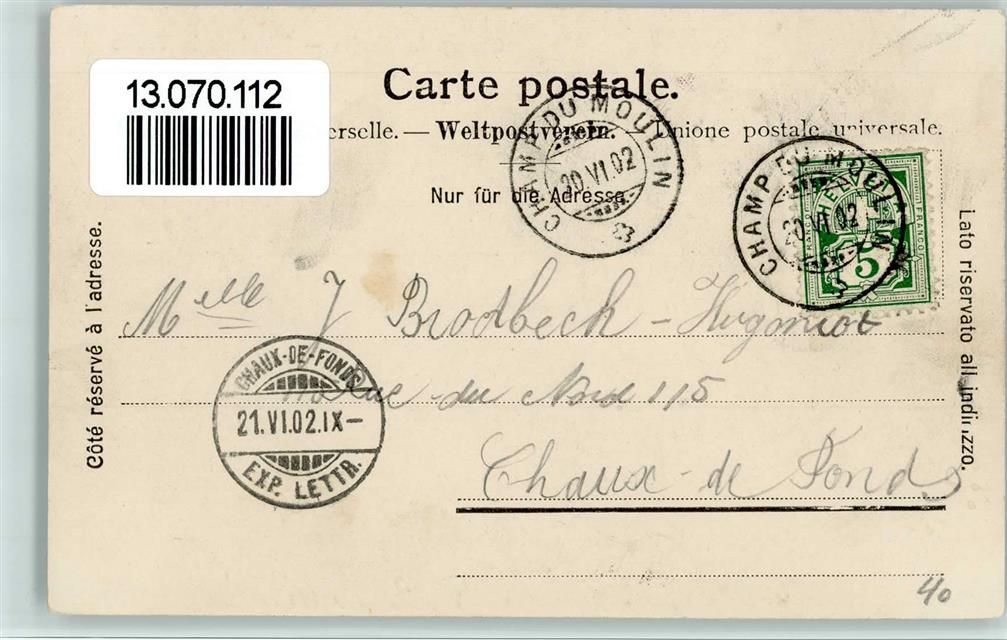 13.070.112
Carte postale.
erselle. — Weltpostverein. — Unione postale universale.
Nur für die Adresse.
CHAMP DU MOULIN
20 VI 02
CHAMP DU MOULIN
20 VI 02
HELVETIA
FRANCO
5
Côté réservé à l'adresse.
Lato riservato all'indirizzo.
Mlle J Brodbeck-Hugueniot
rue du Nord 115
Chaux-de Fonds
CHAUX-DE-FONDS
21.VI.02.IX–
EXP. LETTR.
40